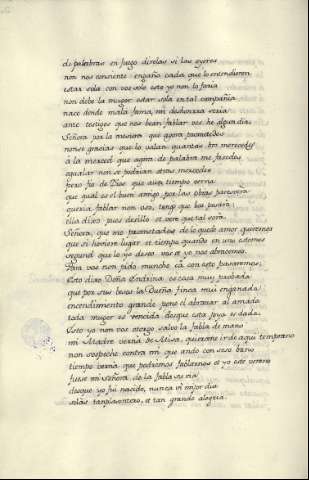 de palabras en juego direlas si las oyeres
non nos consiente engaño cada que lo entendieren
estar sola con vos solo esto yo non lo faria
non debe la muger estar sola en tal compañia
nace dende mala fama, mi deshonra seria
ante testigos que nos vean fablar vos he algun dia
Señora por la mesura que agora prometedes
non se gracias que lo valan quantas tu merecedes
á la merced que agora de palabra me facedes
egualar non se podrian otras mercedes
pero fio de Dios que aun tiempo verna
que qual es el buen amigo por las obras parescera
querria fablar non oso, tengo que bos pesará
ella dixo pues desillo et vere que tal será
Señora, que me prometades de lo que de amor queremos
que si hobiere lugar et tiempo quando en uno estemos
segund que lo yo deseo vos et yo nos abracemos
Para vos non pido mucho cá con esto pasaremos
Esto dixo Doña Endrina es cosa muy probada
que por sus besos la Dueña finca muy engañada
encendimiento grande pone el abrazar al amada
toda muger es vencida desque esta joya es dada
Esto yo non vos otorgo salvo la fabla de mano
mi Madre verna de Misa, quierome ir de aqui temprano
non sospeche contra mi que ando con seso vano
tiempo verna que podremos fablarnos et yo este verano
fuese mi señora de la fabla su via
desque yo fui nacido, nunca vi mejor dia
solas tan plasentero, et tan grande alegria